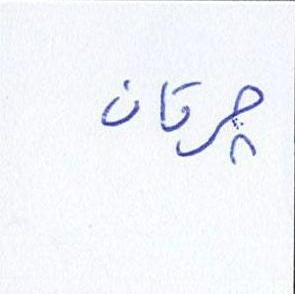 چرقان